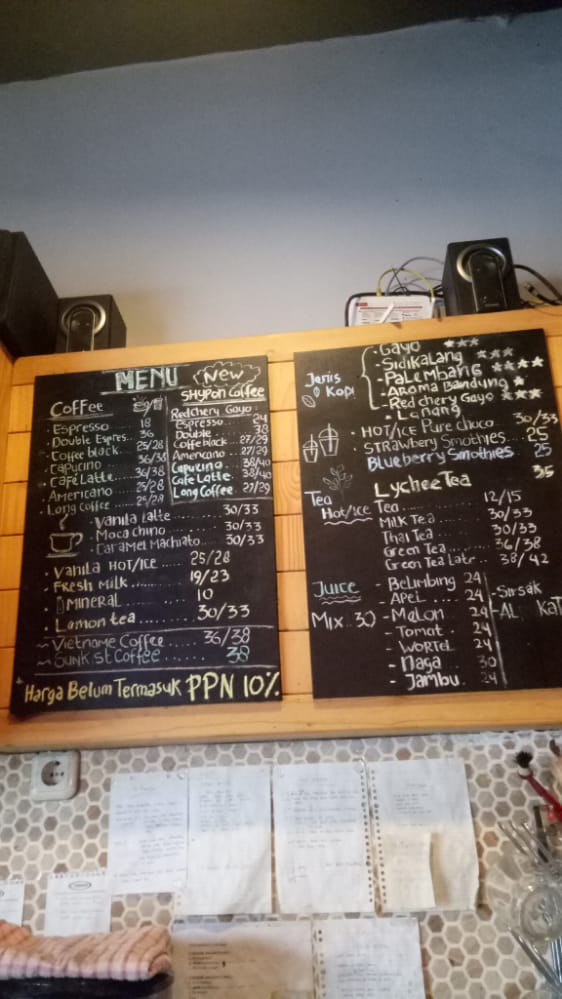 MENU
Coffee
Espresso 18
Double Espres.. 36
Coffee black.. 25/28
Capucino 36/38
Cafe Latte.. 36/38
Americano.... 25/28
Long Coffee ..... 25/28
Vanila Latte 30/33
Moca chino 30/33
Caramel Machiato.. 30/33
Vanila HOT/ICE 25/28
FResh Milk 19/23
MiNERAL 10
Lemon tea 30/33
Vietname Coffee 36/38
Sunkist Coffee 38
Harga Belum Termasuk PPN 10%
New
SHYPON Coffee
Redchery Gayo
Espresso 24
Double 38
Coffe black... 27/29
Americano 27/29
Capucino 38/40
Cafe Latte 38/40
Long Coffee 27/29
Jenis Kopi
Gayo ***
Sidikalang ***
PaLembang ****
AROMA Bandung *
Red chery Gayo ***
Lanang
HOT/ICE Pure choco 30/33
STRAWbery Smothies.. 25
Blueberry Smothies 25
Lychee Tea 35
Tea Hot/ice
Tea 12/15
Milk Tea 30/33
Thai Tea 30/33
Green Tea 36/38
Green Tea Late.. 38/42
Juice
MIX. 30
- BeLimbing 24
- APel 24
- Melon 24
- Tomat 24
- WORTEL 24
- Naga 30
- Jambu 24
- Sirsak
- AL KAT